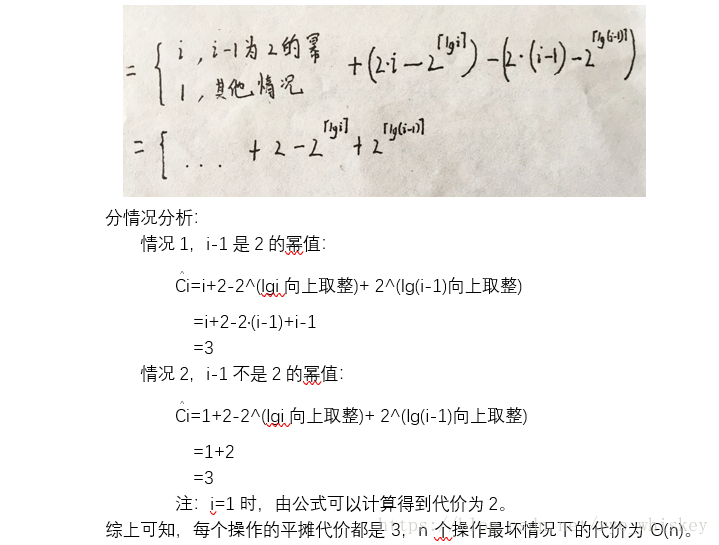 = { i , i-1为2的幂 + (2·i - 2^⌈lgi⌉) - (2·(i-1) - 2^⌈lg(i-1)⌉)
1 , 其他情况
= { ... + 2 - 2^⌈lgi⌉ + 2^⌈lg(i-1)⌉
分情况分析：
情况 1，i-1 是 2 的幂值：
Ĉi=i+2-2^(lgi 向上取整)+ 2^(lg(i-1)向上取整)
=i+2-2·(i-1)+i-1
=3
情况 2，i-1 不是 2 的幂值：
Ĉi=1+2-2^(lgi 向上取整)+ 2^(lg(i-1)向上取整)
=1+2
=3
注：i=1 时，由公式可以计算得到代价为 2。
综上可知，每个操作的平摊代价都是 3，n 个操作最坏情况下的代价为 O(n)。